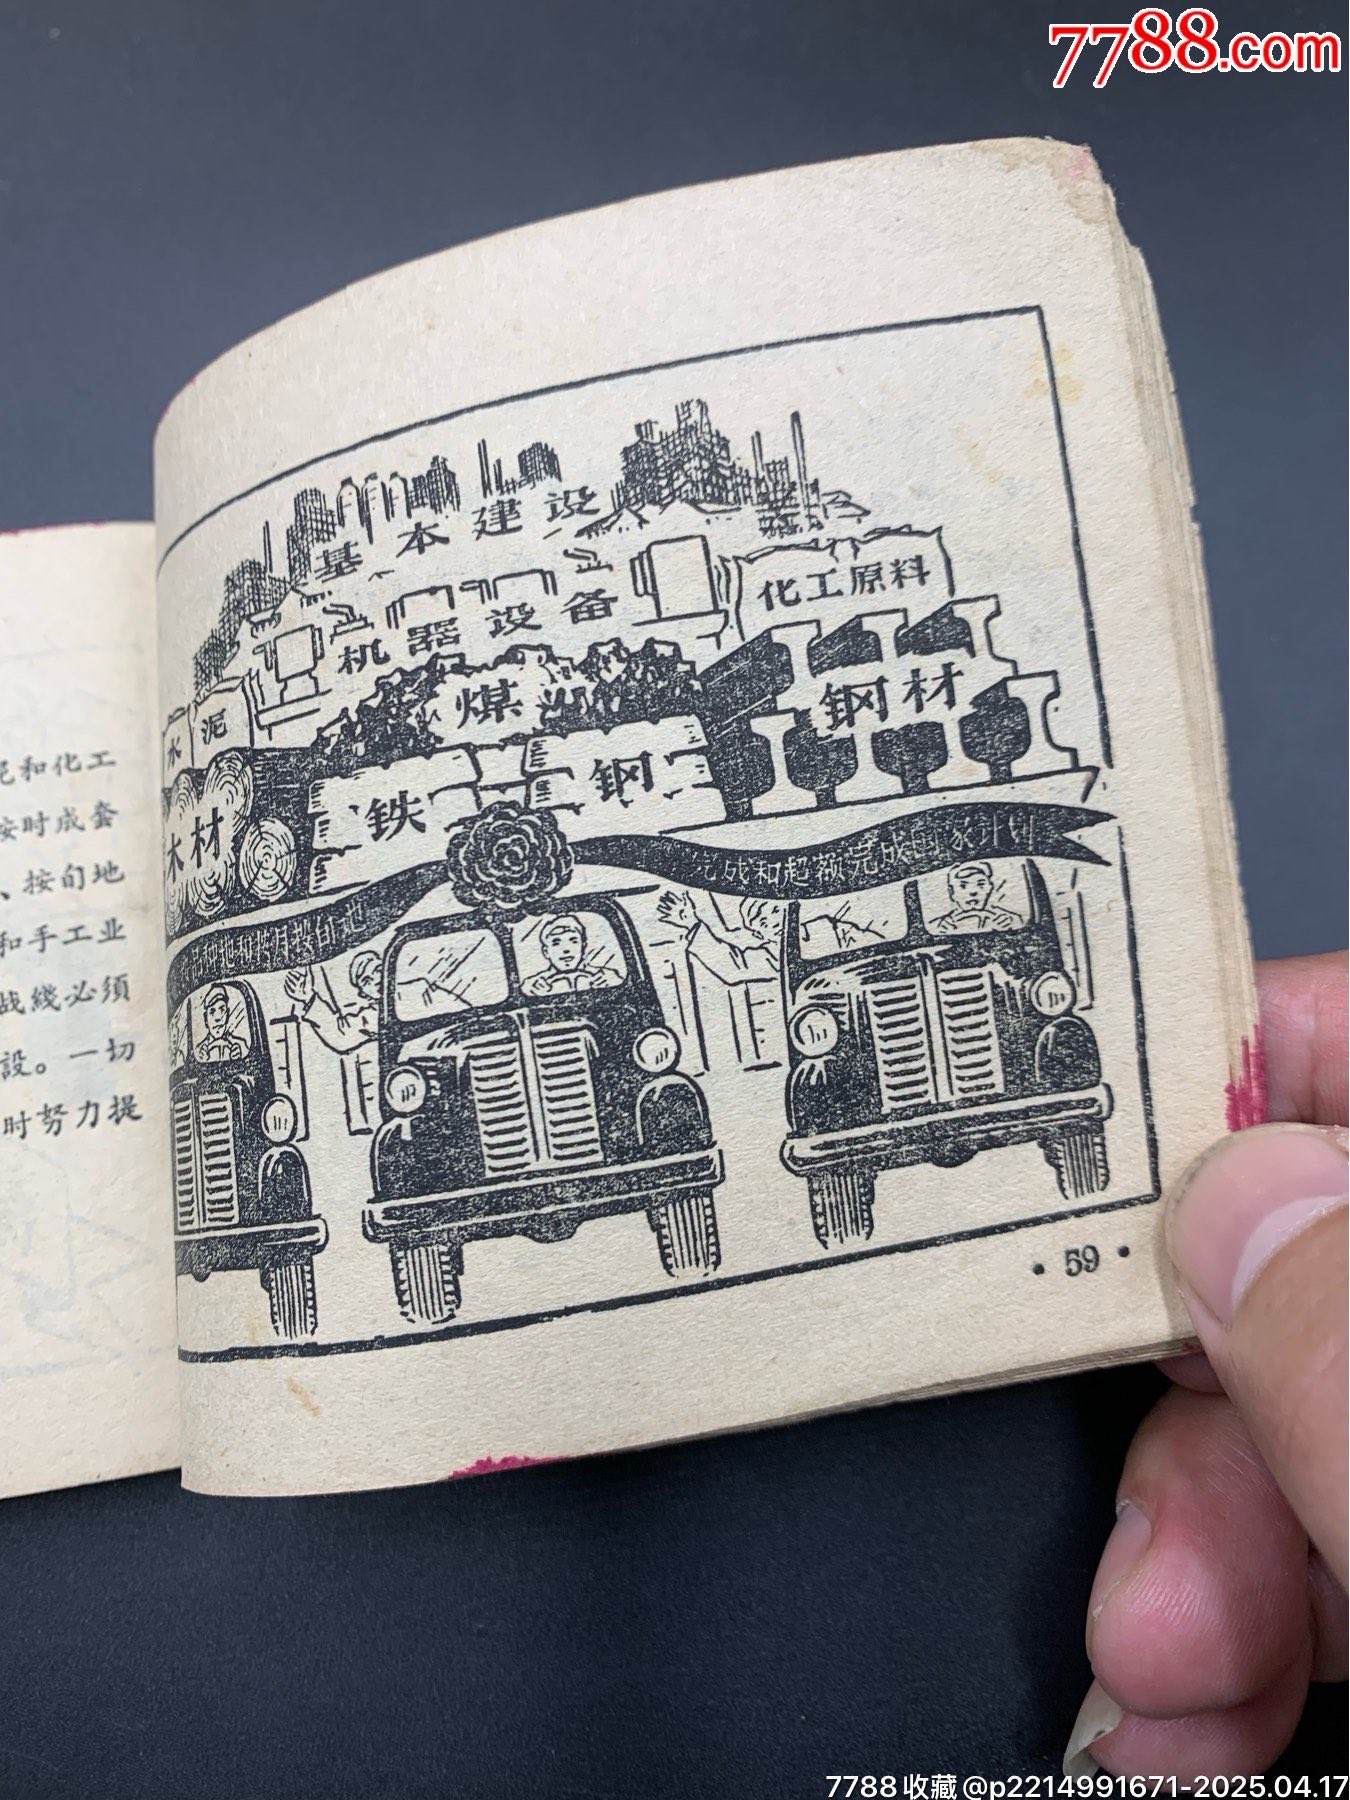 7788.com
泥和化工
按时成套
、按旬地
和手工业
战綫必须
設。一切
时努力提
基本建设
机器设备
化工原料
水泥
煤
钢材
木材
铁
钢
按月按旬地
完成和超额完成国家计划
· 59 ·
7788收藏@p2214991671-2025.04.17